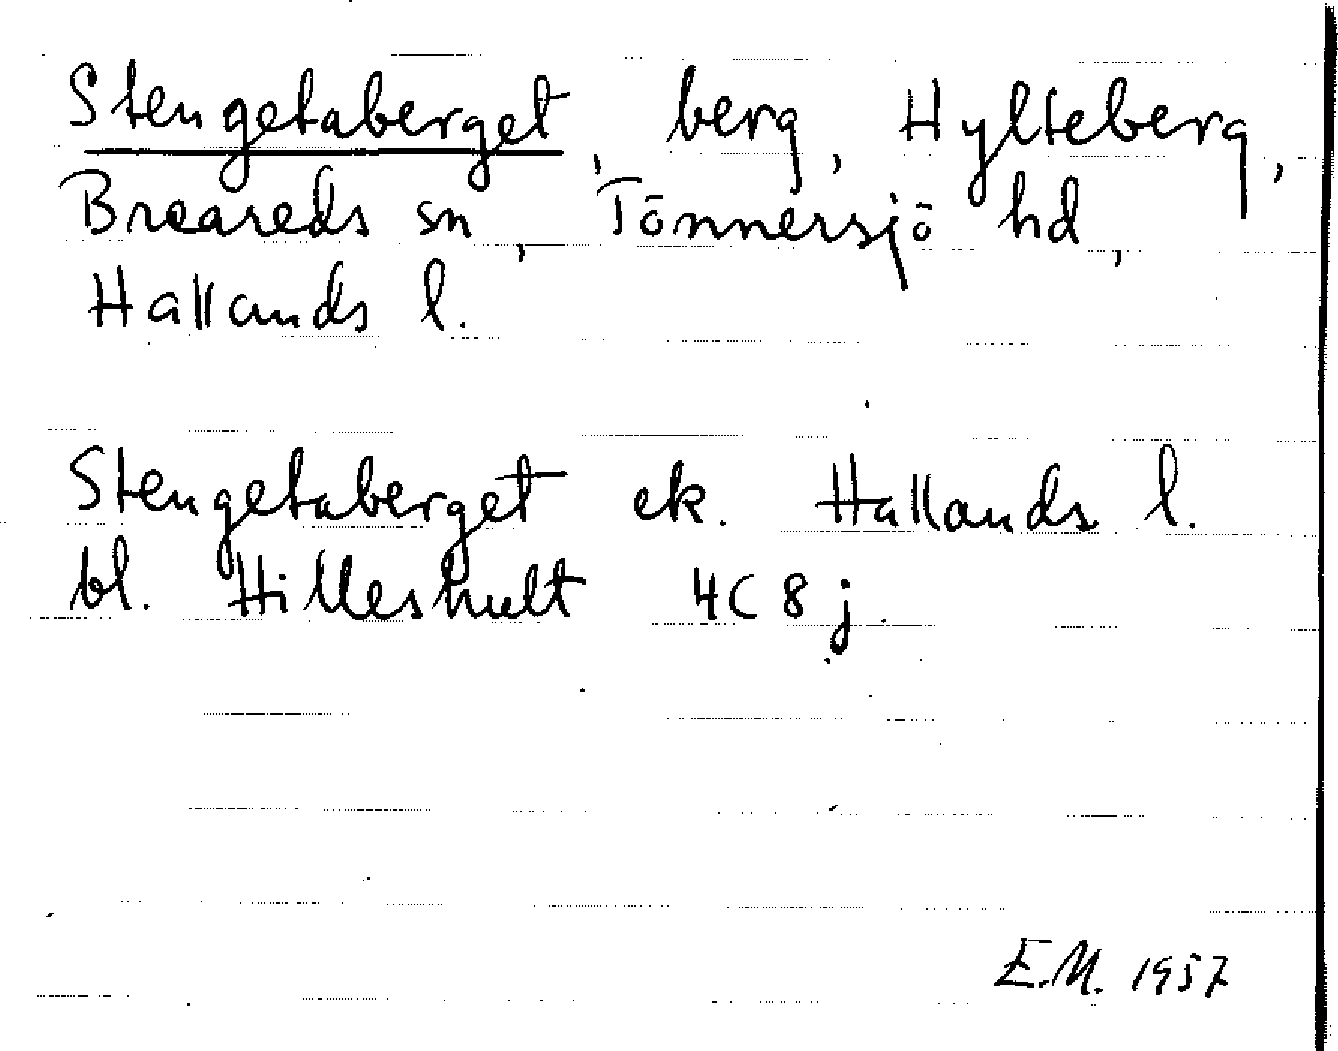 Stengetaberget, berg, Hylteberg,
Breareds sn, Tönnersjö hd,
Hallands l.
Stengetaberget ek. Hallands l.
bl. Hilleshult 4C 8 j.
E.M. 1957